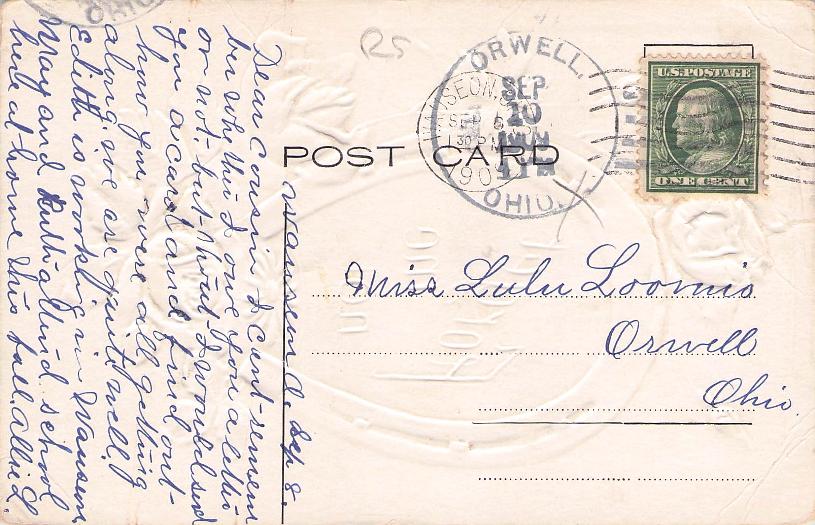 OHIO
R5
ORWELL,
SEP
10
AM
OHIO.
WAUSEON,
SEP 8
30 PM
190
U.S. POSTAGE
ONE CENT
POST CARD
Miss Lulu Loomis
Orwell
Ohio.
Wauseon O. Sep 8.
Dear Cousin I cant remem
ber whether I owe you a letter
or not but thout I would send
you a card and find out
how you were all getting
along. we are quite well,
Edith is working in Wauseon
May and Ruth attend school
here at home this fall. Allie L.